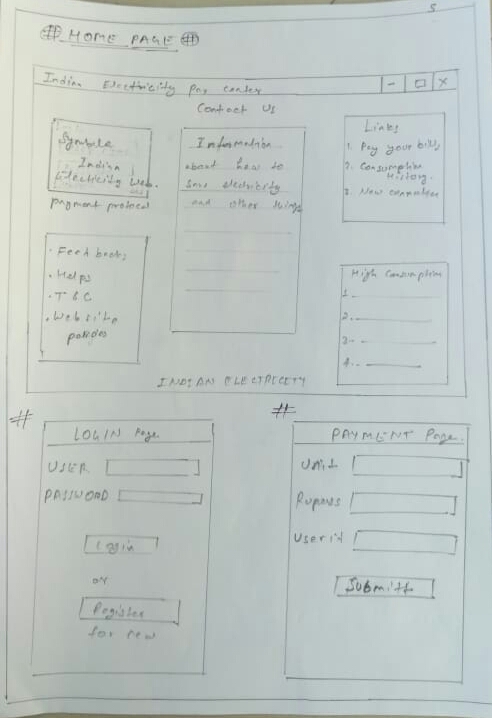 5
# HOME PAGE #
Indian Electricity Pay center - X
Contact Us
Symbole
Indian
Electricity Web.
payment protocol
Information
about how to
save electricity
and other things
Links
1. Pay your bills
2. Consumption
History.
3. New connection
. Feed books
. Helps
. T & C
. Website
policies
High Consumption
1.
2.
3.
4.
INDIAN ELECTRICITY
#
LOGIN Page
USER
PASSWORD
Login
or
Register
for new
#
PAYMENT Page.
Unit
Rupees
User id
Submitt